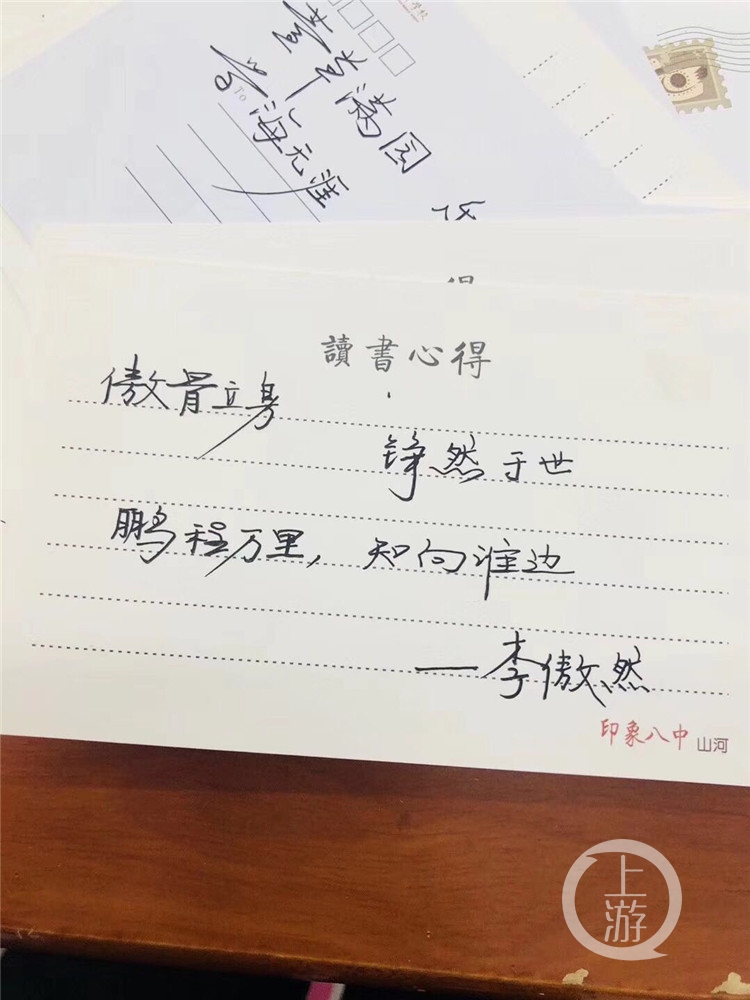 满园
学海无涯
To
讀書心得
傲骨立身
铮然于世
鹏程万里，知向谁边
—李傲然
印象八中 山河
上游